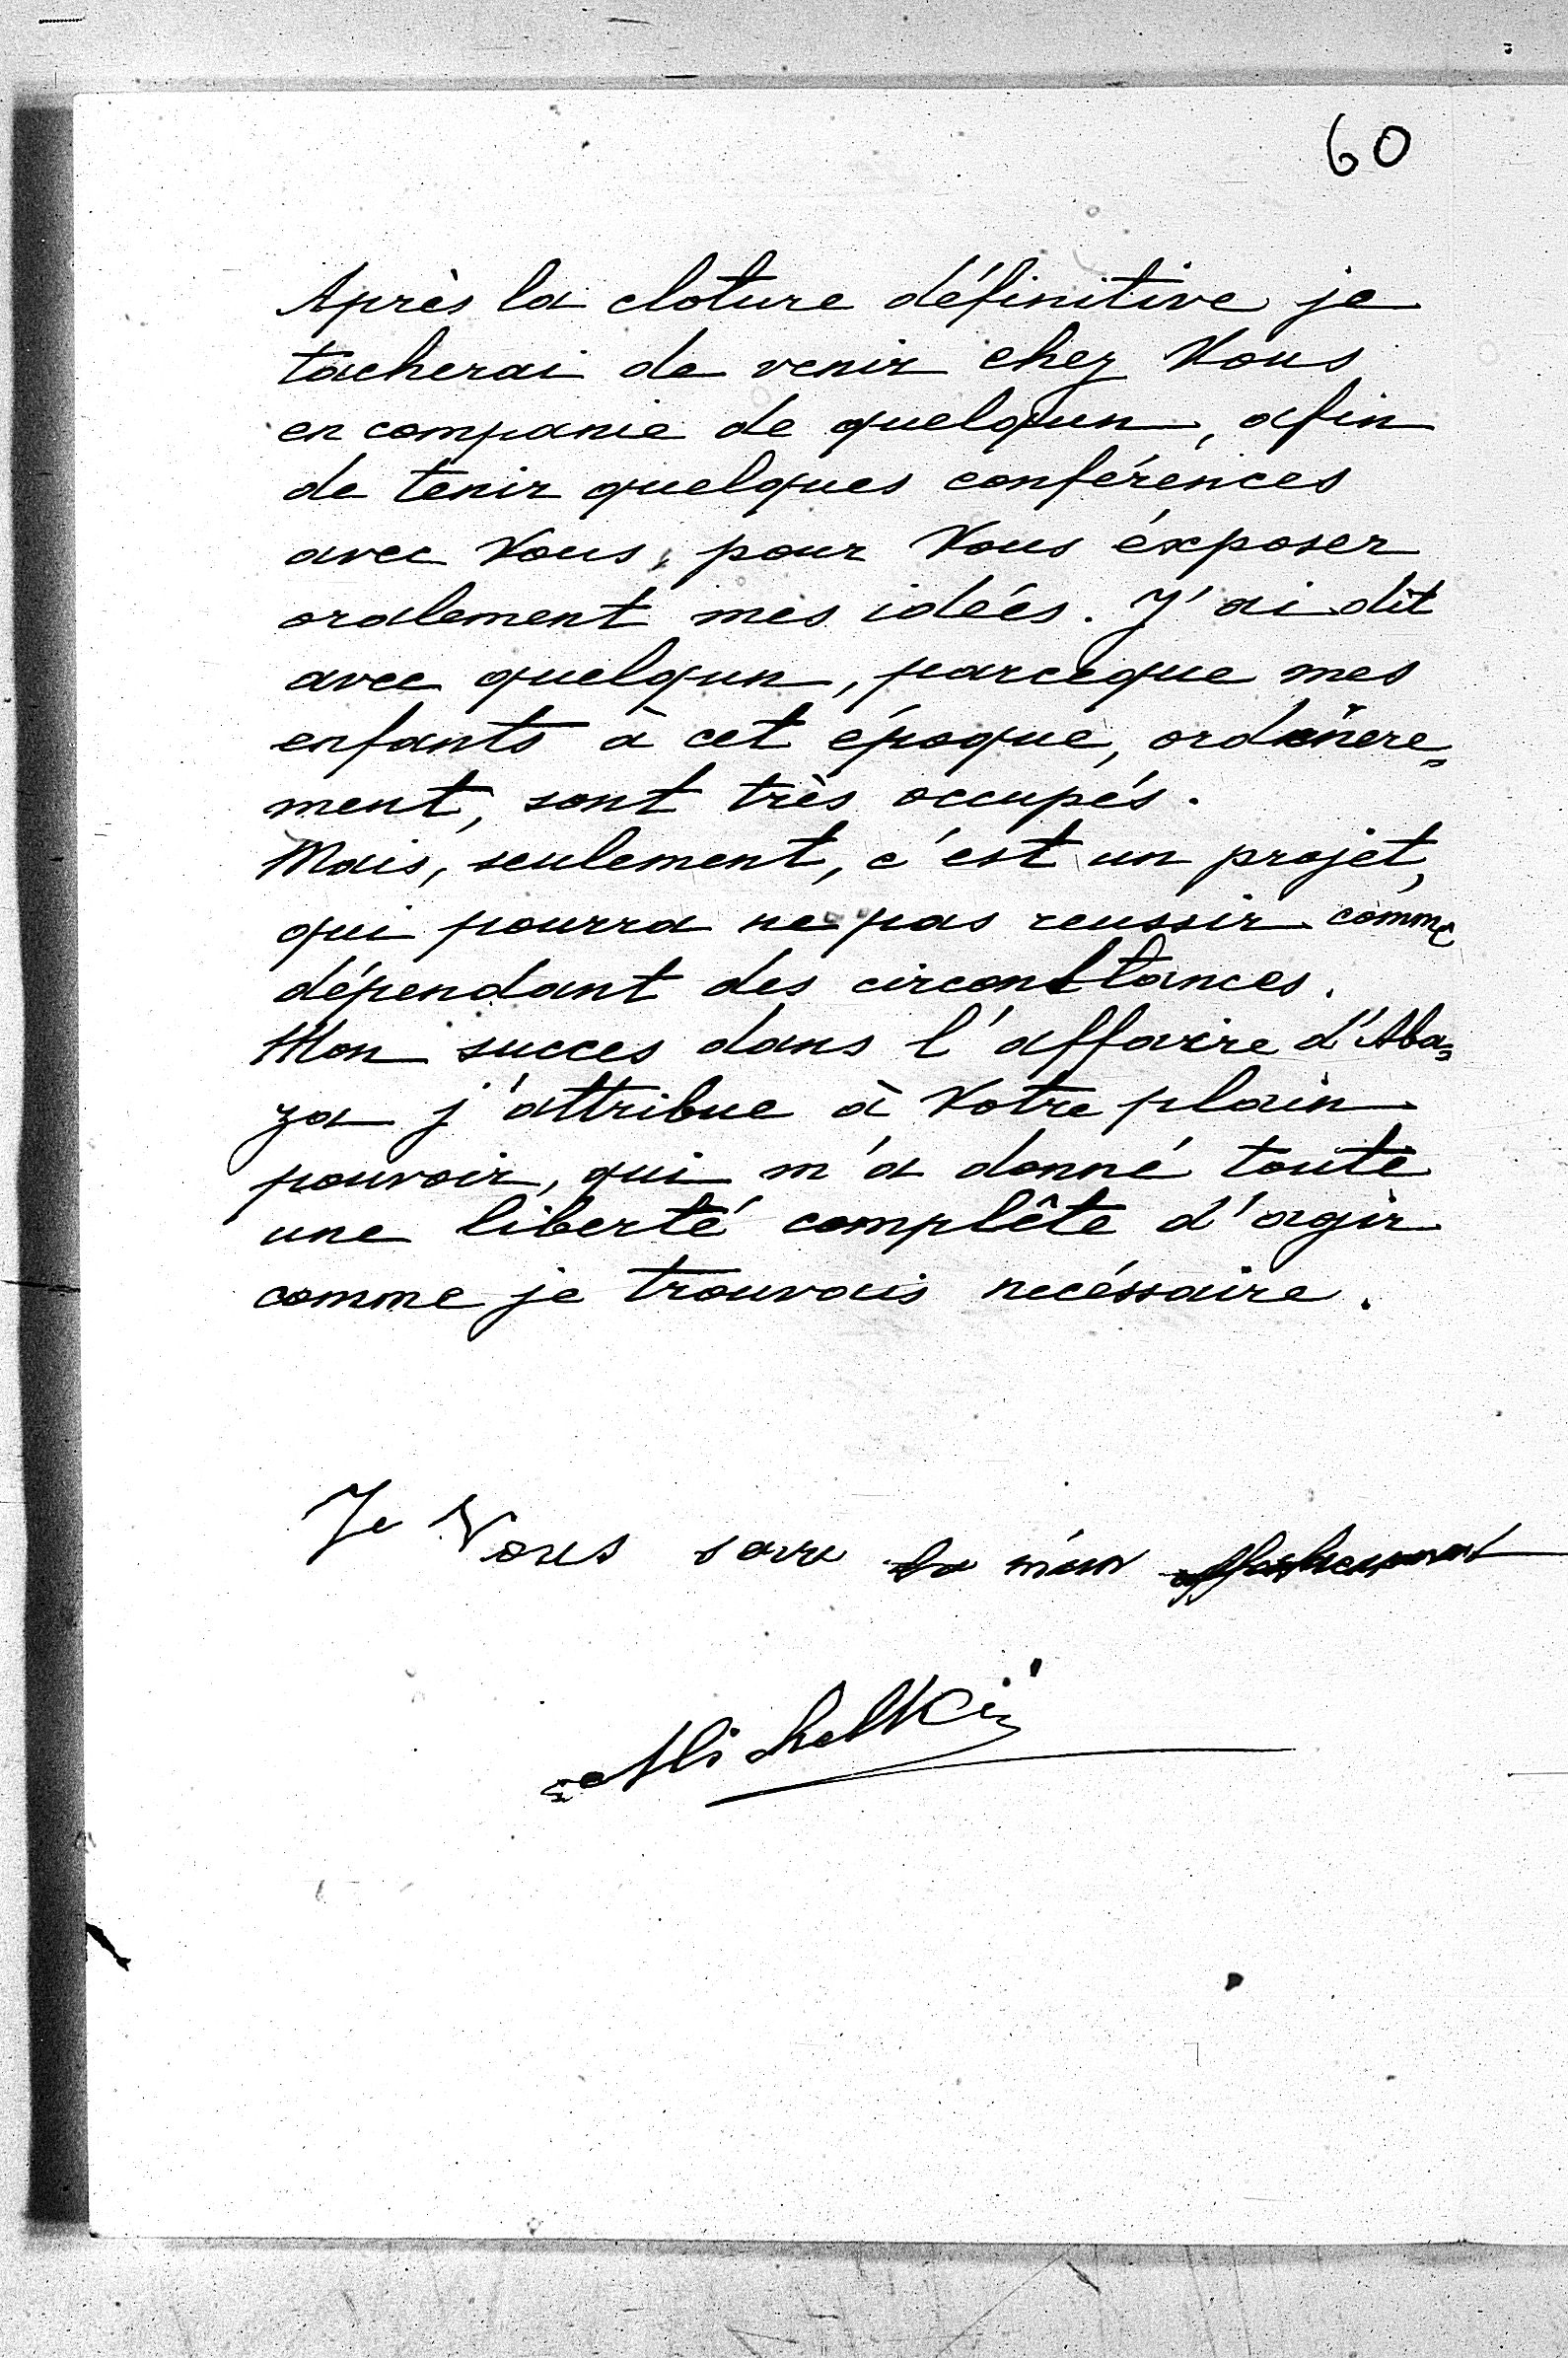 60
Après la cloture définitive je
tacherai de venir chez Vous
en companie de quelqun, afin
de tenir quelques conférences
avec Vous, pour Vous éxposer
oralement mes idées. J'ai dit
avec quelqun, parceque mes
enfants à cet époque, ordinere=
ment, sont très occupés.
Mais, seulement, c'est un projet,
qui pourra ne pas reussir comme
dépendant des circonstances.
Mon succes dans l'affaire d'Aba=
za j'attribue à Votre plain
pouvoir, qui m'a donné toute
une liberté complête d'agir
comme je trouvais necéssaire.
Je Vous serre la main